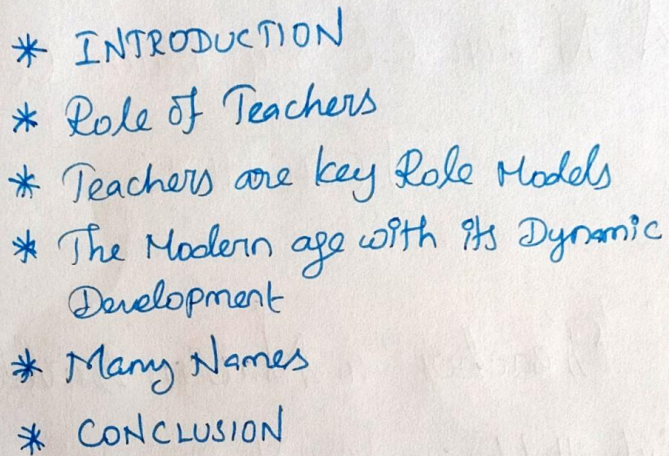 * INTRODUCTION
* Role of Teachers
* Teachers are key Role Models
* The Modern age with its Dynamic
Development
* Many Names
* CONCLUSION